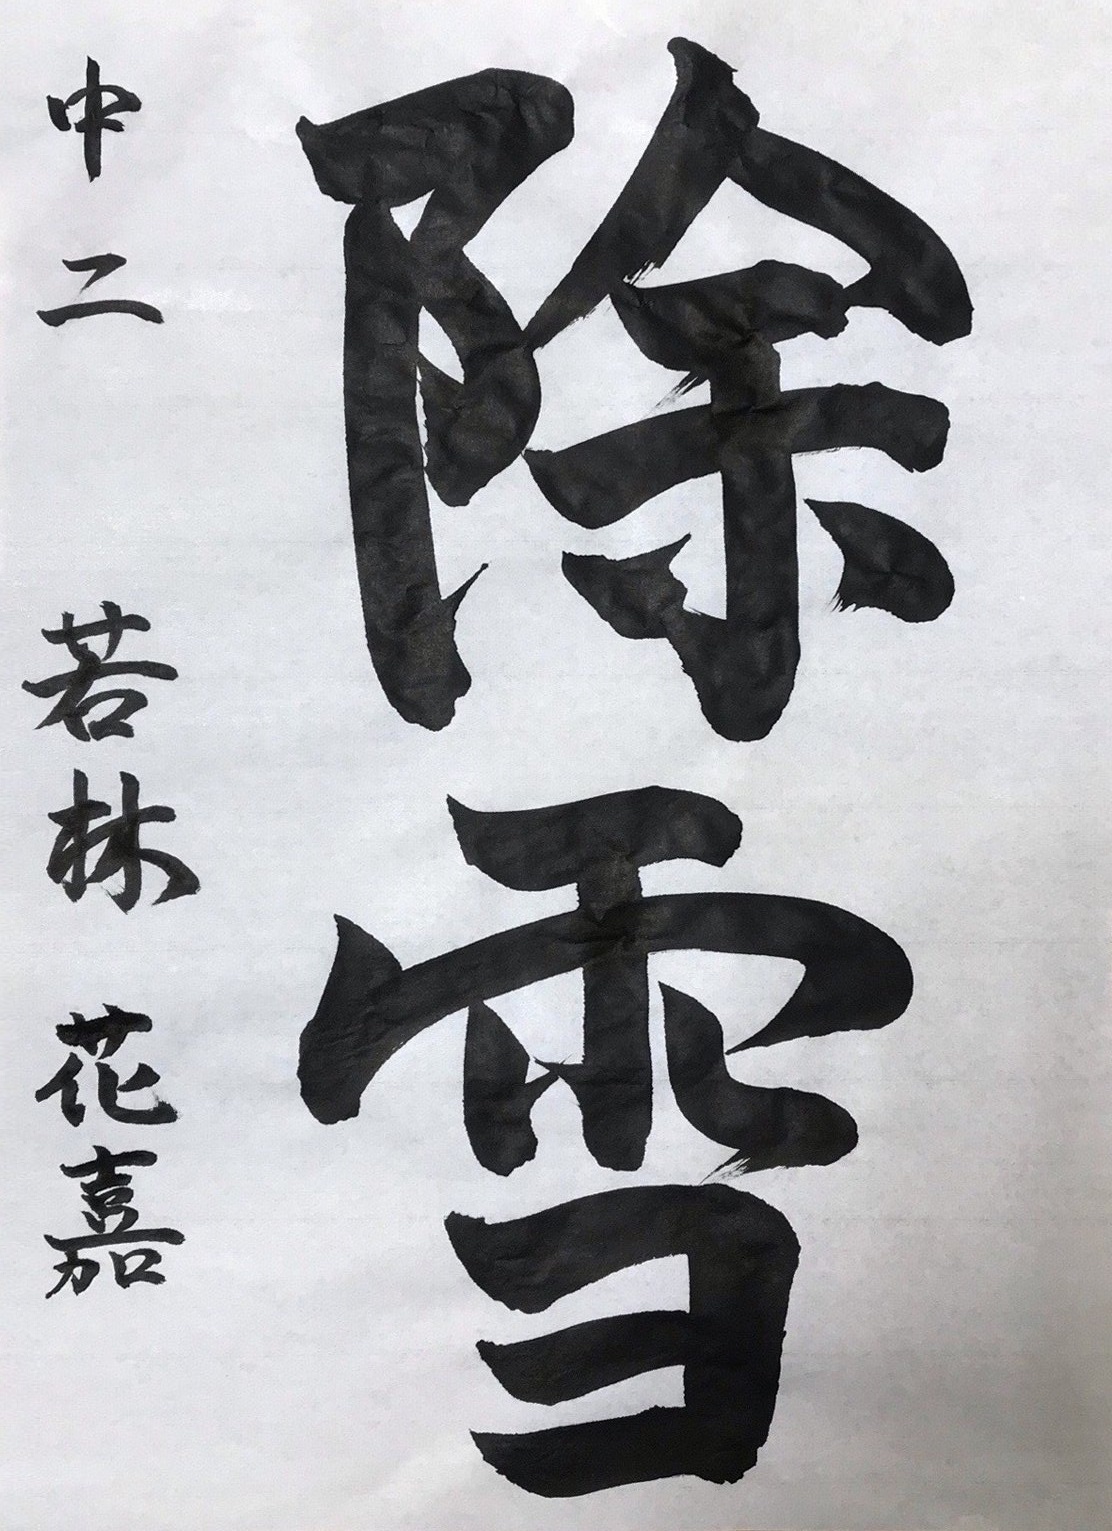 除雪
中二 若林 花嘉